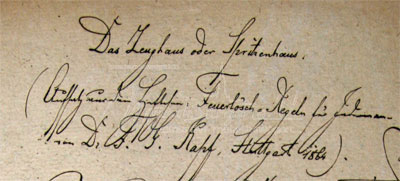 Das Zeughaus oder Spritzenhaus.
(Aufsatz aus dem : Feuerlösch-Regeln für Jedermann
von Dr. F. G. Kapf, Stuttgart 1864).